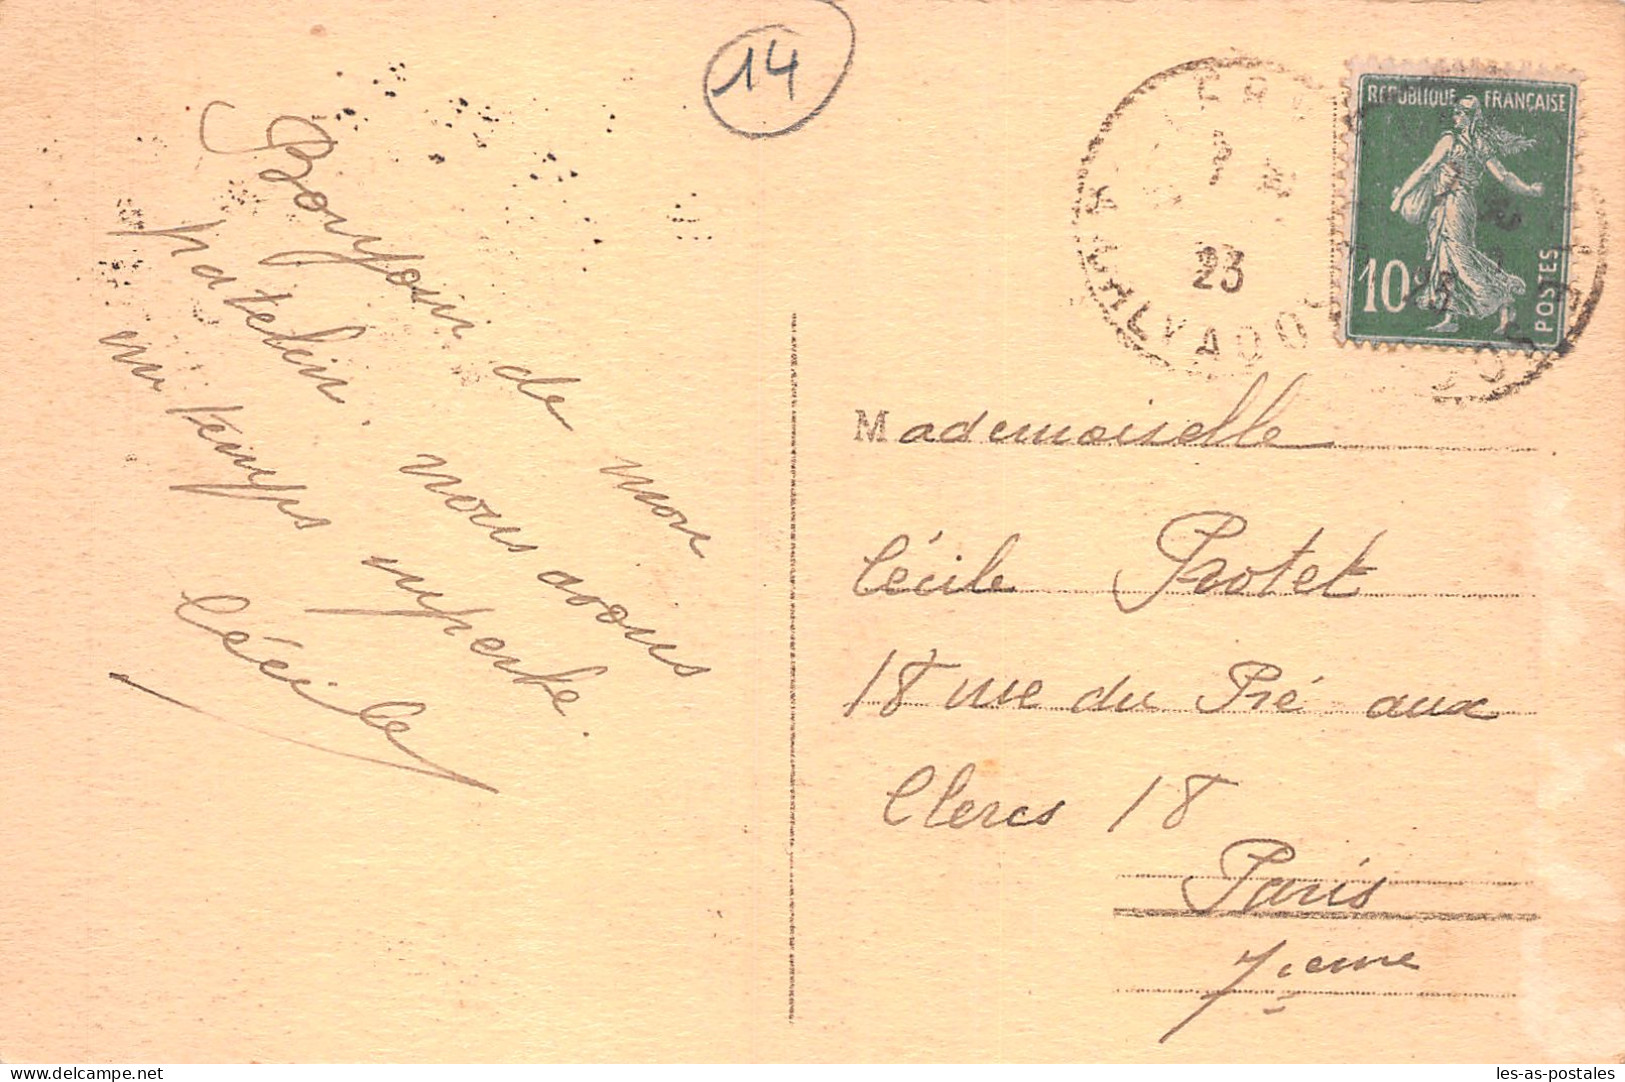 14
Bonjour de mon
patelin. nous avons
un temps superbe.
Cécile
REPUBLIQUE FRANÇAISE
10
POSTES
23
CALVADOS
Mademoiselle
Cécile Protet
18 rue du Pré aux
Clercs 18
Paris
7ieme
delcampe.net
les-as-postales